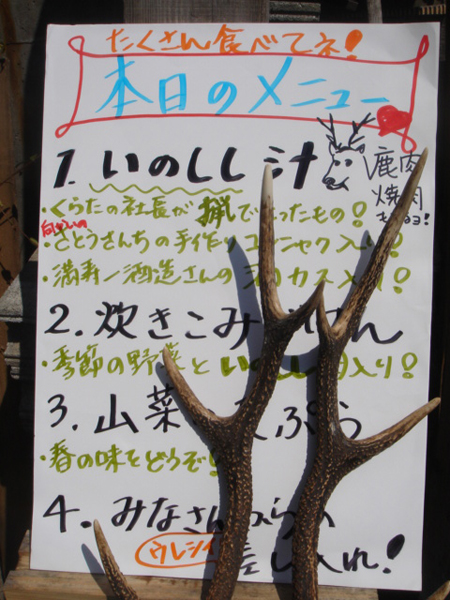 たくさん食べてネ!
本日のメニュー
1. いのしし汁
鹿肉
焼肉
あるヨ!
・くらたの社長が猟でとったもの!
向いの
・さとうさんちの手作りコンニャク入り!
・満寿一酒造さんの カス入り!
2. 炊きこみ はん
・季節の野菜と いのしし 入り!
3. 山菜 ぷら
・春の味をどうぞ!
4. みなさんからの
ウレシイ
差し入れ!